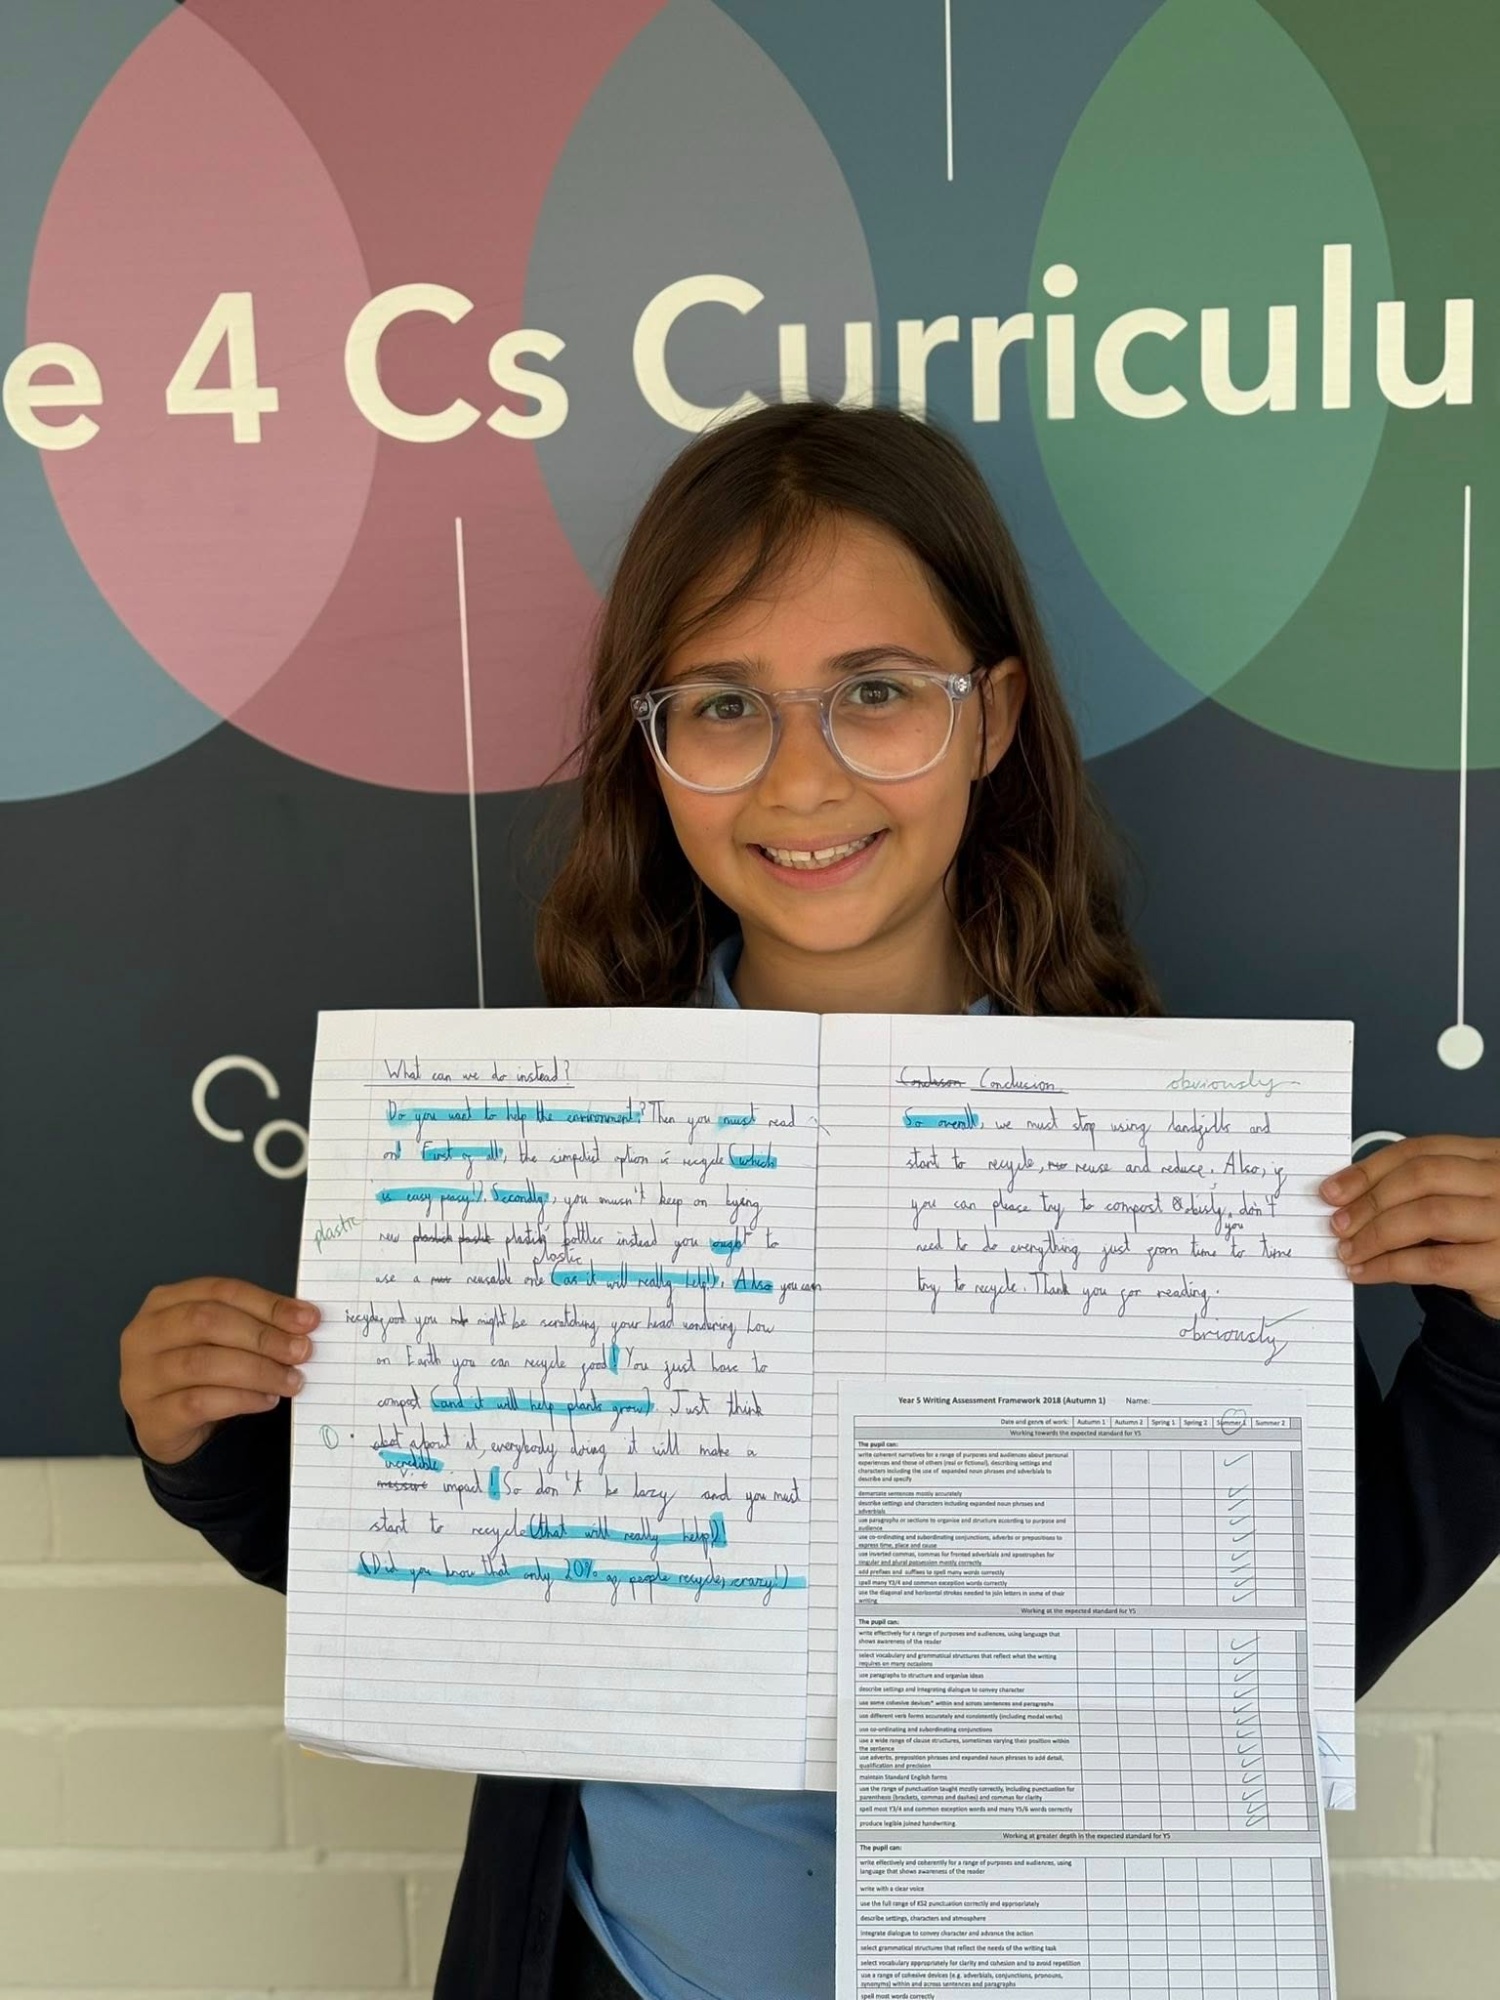 e 4 Cs Curriculu
Co
What can we do instead?
Do you want to help the environment? Then you must read
on! First of all, the simplist option is recycle (which
is easy peasy!). Secondly, you musn't keep on bying
plastic
new plastick plastik plastic bottles instead you ought to
plastic
use a reusable one (as it will really help!). Also you can
recycle food you might be scratching your head wondering how
on Earth you can recycle food! You just have to
compost (and it will help plants grow). Just think
about it, everybody doing it will make a
incredible
massive impact! So don't be lazy and you must
start to recycle (that will really help)!
(Did you know that only 20% of people recycle, crazy!)
Conclusion
obviously
So overall, we must stop using landfills and
start to recycle, reuse and reduce. Also, if
you can please try to compost &
you
don't
need to do everything just from time to time
try to recycle. Thank you for reading.
obviously
Year 5 Writing Assessment Framework 2018 (Autumn 1) Name:
Date and genre of work: Autumn 1 Autumn 2 Spring 1 Spring 2 Summer 1 Summer 2
Working towards the expected standard for Y5
The pupil can:
write coherent narratives for a range of purposes and audiences about personal
experiences and those of others (real or fictional), describing settings and
characters including the use of expanded noun phrases and adverbials to
describe and specify
demarcate sentences mostly accurately
describe settings and characters including expanded noun phrases and
adverbials
use paragraphs or sections to organise and structure according to purpose and
audience
use co-ordinating and subordinating conjunctions, adverbs or prepositions to
express time, place and cause
use inverted commas, commas for fronted adverbials and apostrophes for
singular and plural possession mostly correctly
add prefixes and suffixes to spell many words correctly
spell many Y3/4 and common exception words correctly
use the diagonal and horizontal strokes needed to join letters in some of their
writing
Working at the expected standard for Y5
The pupil can:
write effectively for a range of purposes and audiences, using language that
shows awareness of the reader
select vocabulary and grammatical structures that reflect what the writing
requires on many occasions
use paragraphs to structure and organise ideas
describe settings and integrating dialogue to convey character
use some cohesive devices* within and across sentences and paragraphs
use different verb forms accurately and consistently (including modal verbs)
use co-ordinating and subordinating conjunctions
use a wide range of clause structures, sometimes varying their position within
the sentence
use adverbs, preposition phrases and expanded noun phrases to add detail,
qualification and precision
maintain Standard English forms
use the range of punctuation taught mostly correctly, including punctuation for
parenthesis (brackets, commas and dashes) and commas for clarity
spell most Y3/4 and common exception words and many Y5/6 words correctly
produce legible joined handwriting
Working at greater depth in the expected standard for Y5
The pupil can:
write effectively and coherently for a range of purposes and audiences, using
language that shows awareness of the reader
write with a clear voice
use the full range of KS2 punctuation correctly and appropriately
describe settings, characters and atmosphere
integrate dialogue to convey character and advance the action
select grammatical structures that reflect the needs of the writing task
select vocabulary appropriately for clarity and cohesion and to avoid repetition
use a range of cohesive devices (e.g. adverbials, conjunctions, pronouns,
synonyms) within and across sentences and paragraphs
spell most words correctly